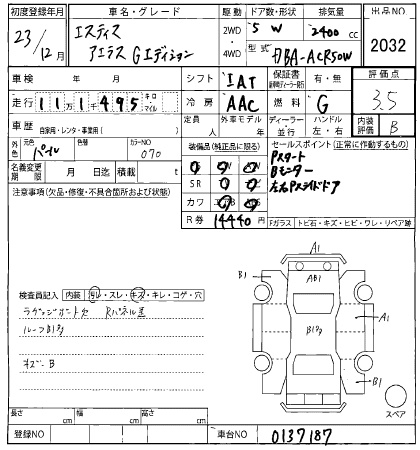 初度登録年月 車名・グレード 駆動 ドア数・形状 排気量 出品NO
23/12月 エスティマ アエラス Gエディション 2WD・4WD 5 W 2400 cc 2032
型式 DBA-ACR50W
車検 年 月 シフト IAT 保証書 有・無 評価点
走行 1 1万1千495 キロ・マイル 冷房 AAC 燃料 G 3.5
車歴 自家用・レンタ・事業用( ) 定員 人 外車モデル ディーラー・並行 ハンドル 左・右 内装評価 B
外色 元色 パール 色替 カラーNO 070
装備品(純正品に限る) セールスポイント(正常に作動するもの)
名義変更期限 月 日迄 積載 t
Pスタート
Bモニター
左右Pスライドドア
注意事項(欠品・修復・不具合箇所および状態)
SR
カワ
R券 14440 円
Fガラス トビ石・キズ・ヒビ・ワレ・リペア跡
A1
B1 AB1
B1 A1
B1
検査員記入 内装 汚レ・スレ・キズ・キレ・コゲ・穴
ルーフB1
B
スペア
長さ cm 幅 cm 高さ cm
登録NO 車台NO 0137187